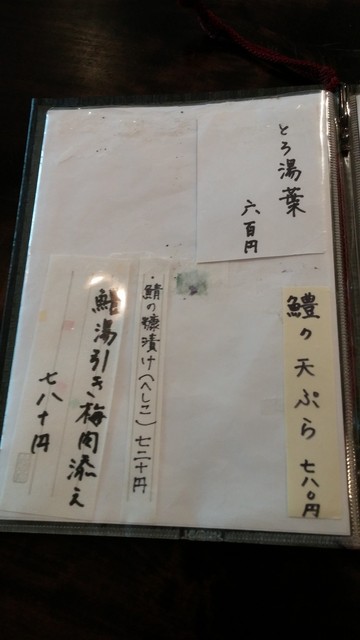 とろ湯葉
六百円
鱧の天ぷら 七八〇円
・鯖の糠漬け(へしこ)七二十円
湯引き梅肉添え
七八十円